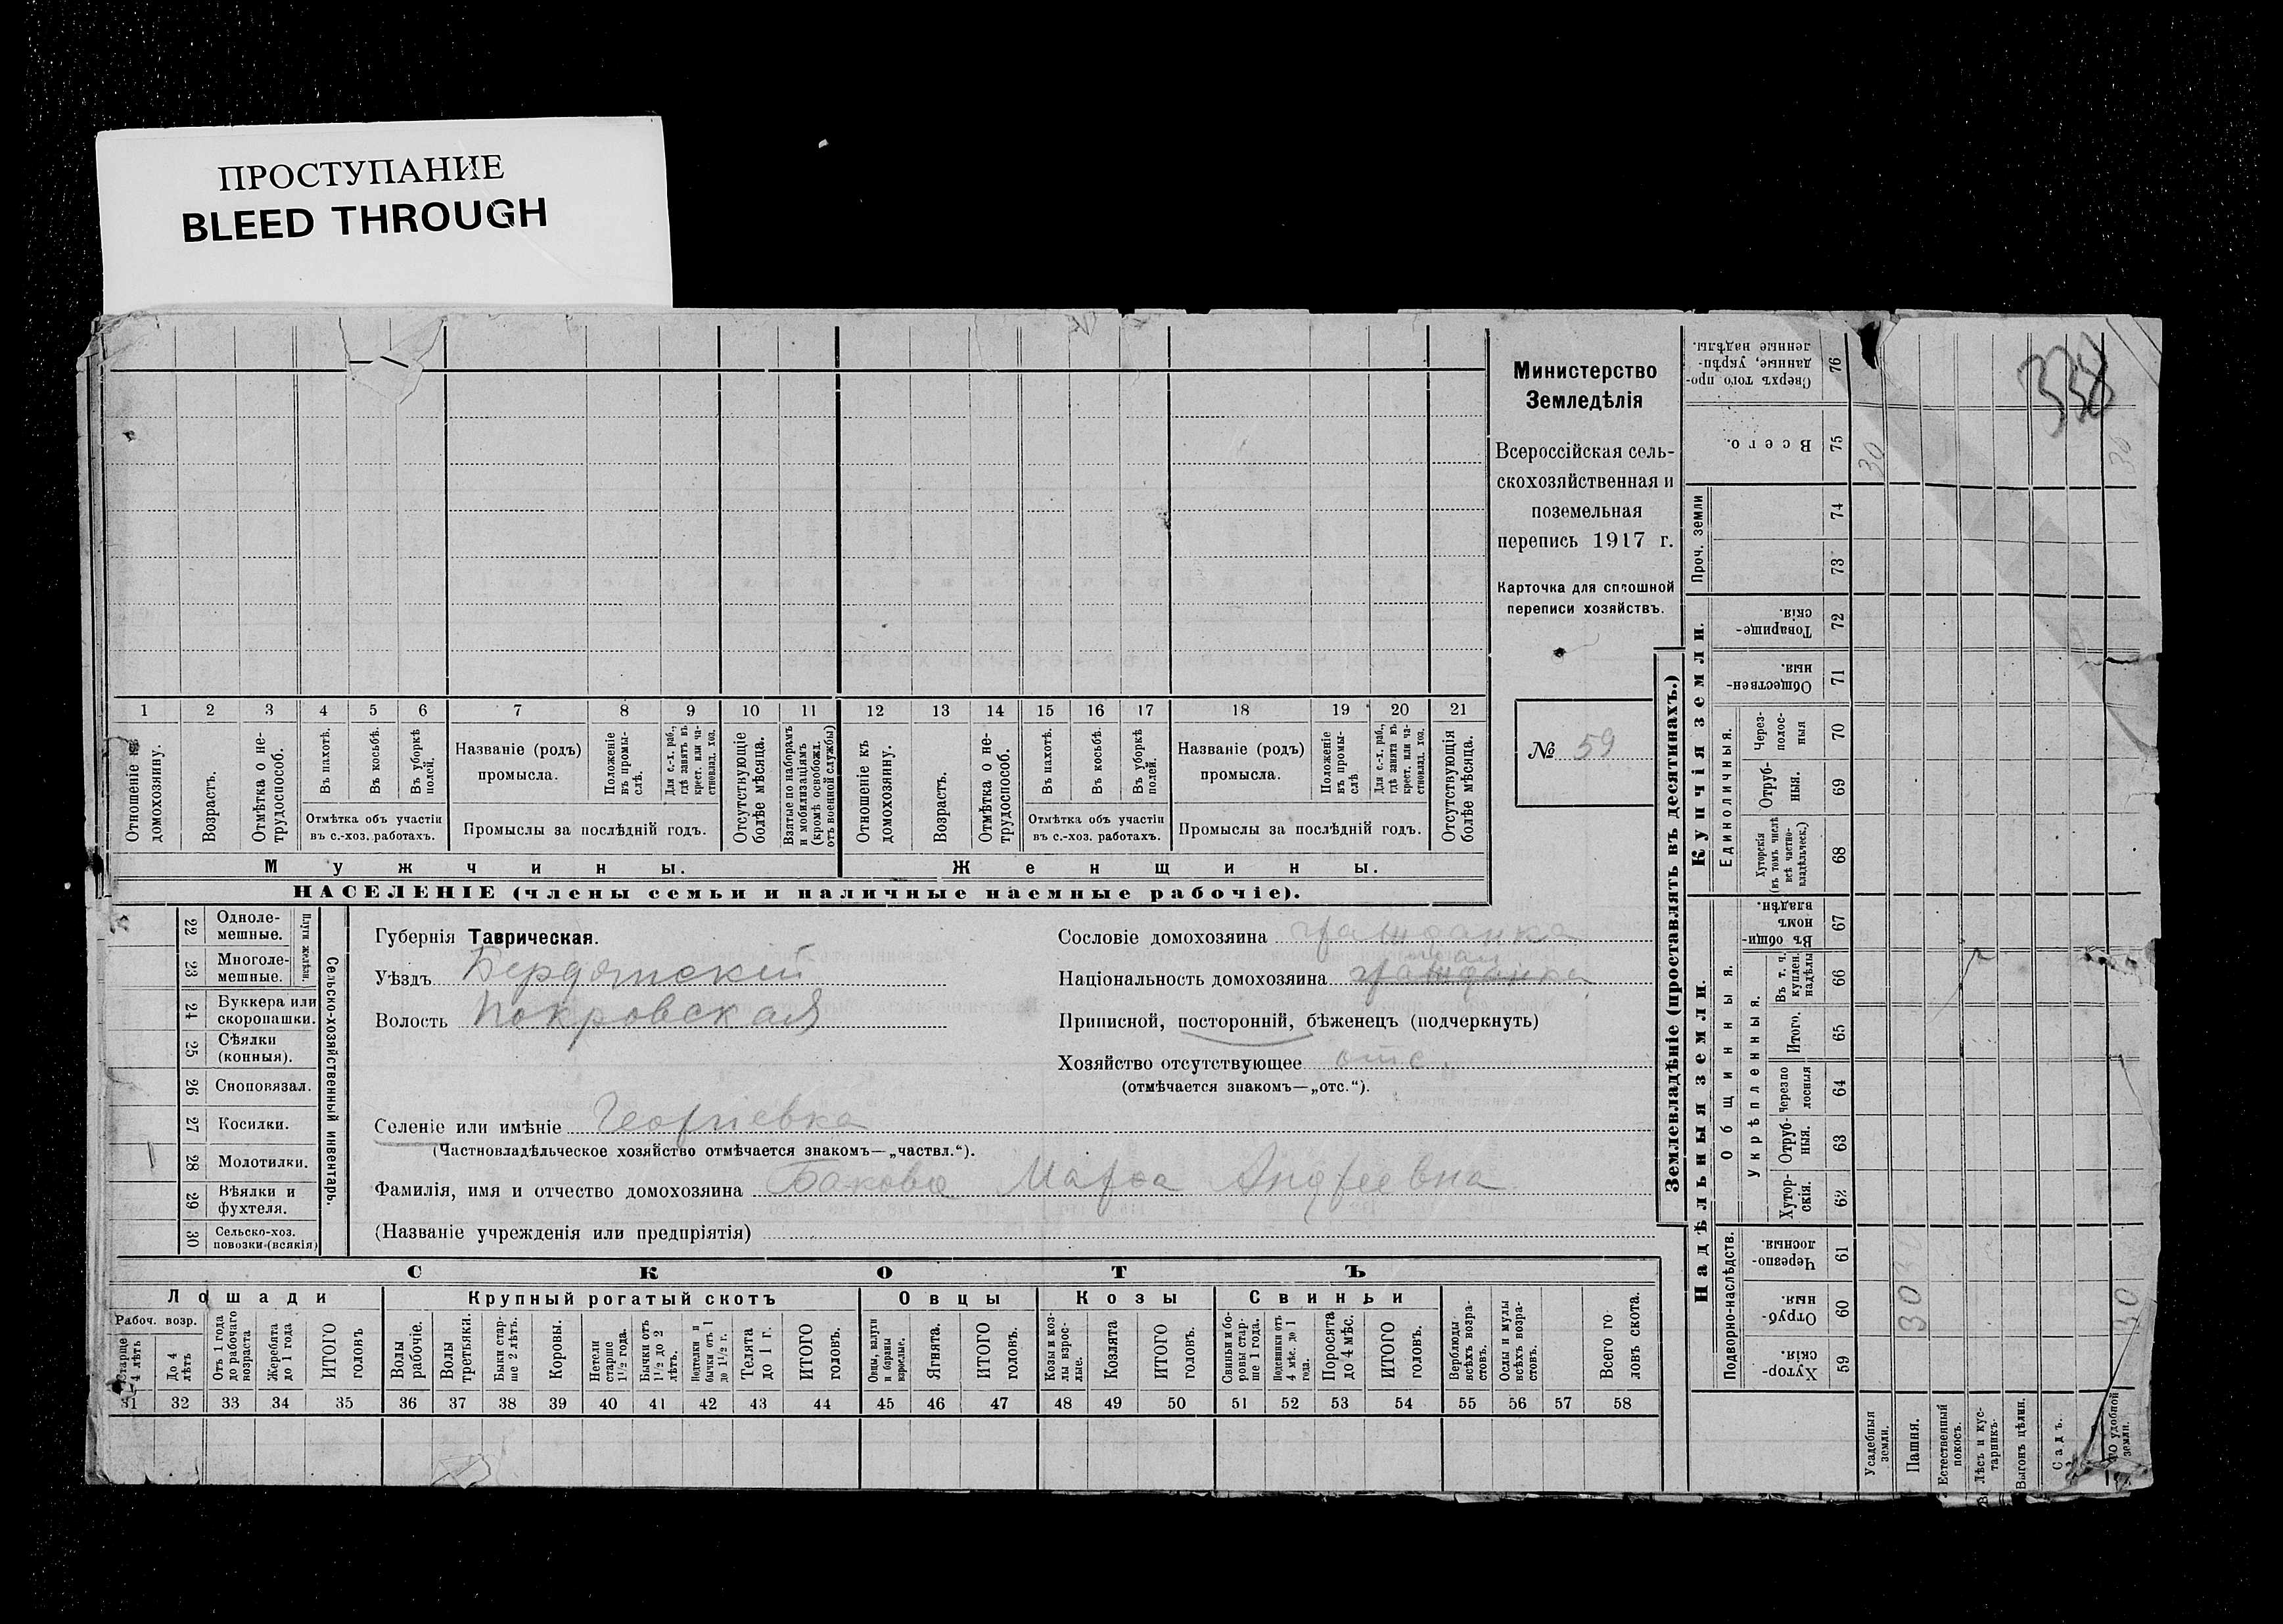 ПРОСТУПАНИЕ
BLEED THROUGH
Министерство
Земледѣлія
Всероссійская сель-
скохозяйственная и
поземельная
перепись 1917 г.
Карточка для сплошной
переписи хозяйствъ.
№ 59
338
1 2 3 4 5 6 7 8 9 10 11 12 13 14 15 16 17 18 19 20 21
Отношеніе къ домохозяину.
Возрастъ.
Отмѣтка о не-трудоспособ.
Въ пахотѣ.
Въ косьбѣ.
Въ уборкѣ полей.
Отмѣтка объ участіи
въ с.-хоз. работахъ.
Названіе (родъ)
промысла.
Положеніе въ промы-слѣ.
Для с.-х. раб., гдѣ занятъ въ крест. или ча-стновлад. хоз.
Промыслы за послѣдній годъ.
Отсутствующіе болѣе мѣсяца.
Взятые по наборамъ и мобилизаціямъ (кромѣ освобожд. отъ военной службы)
Отношеніе къ домохозяину.
Возрастъ.
Отмѣтка о не-трудоспособ.
Въ пахотѣ.
Въ косьбѣ.
Въ уборкѣ полей.
Отмѣтка объ участіи
въ с.-хоз. работахъ.
Названіе (родъ)
промысла.
Положеніе въ промы-слѣ
Для с.-х. раб., гдѣ занята въ крест. или ча-стновлад. хоз.
Промыслы за послѣдній годъ.
Отсутствующія болѣе мѣсяца.
Мужчины.
Женщины.
НАСЕЛЕНІЕ (члены семьи и наличные наемные рабочіе).
22 Одноле-мешные.
23 Многоле-мешные.
Плуги желѣзн.
24 Буккера или скоропашки.
25 Сѣялки (конныя).
26 Сноповязал.
27 Косилки.
28 Молотилки.
29 Вѣялки и фухтеля.
30 Сельско-хоз. повозки (всякія)
Сельско-хозяйственный инвентарь.
Губернія Таврическая.
Уѣздъ Бердянскій
Волость Покровская
Селеніе или имѣніе Георгіевка
(Частновладѣльческое хозяйство отмѣчается знакомъ—„частвл.“).
Фамилія, имя и отчество домохозяина Бакова Марфа Андреевна
(Названіе учрежденія или предпріятія)
Сословіе домохозяина гражданка
Національность домохозяина гражданка
Приписной, посторонній, бѣженецъ (подчеркнуть)
Хозяйство отсутствующее отс.
(отмѣчается знакомъ—„отс.“).
СКОТЪ
Лошади
Крупный рогатый скотъ
Овцы
Козы
Свиньи
Рабоч. возр.
Старше 4 лѣтъ
До 4 лѣтъ
Отъ 1 года до рабочаго возраста
Жеребята до 1 года
ИТОГО головъ
Волы рабочіе.
Волы третьяки.
Быки стар-ше 2 лѣтъ.
Коровы.
Нетели старше 1½ года.
Бычки отъ 1½ до 2 лѣтъ.
Недтелки и бычки отъ 1 до 1½ г.
Телята до 1 г.
ИТОГО головъ.
Овцы, валухи и бараны взрослые.
Ягнята.
ИТОГО головъ.
Козы и коз-лы взрос-лые.
Козлята
ИТОГО головъ.
Свиньи и бо-ровы стар-ше 1 года.
Подсвинки отъ 4 мѣс. до 1 года.
Поросята до 4 мѣс.
ИТОГО головъ.
Верблюды всѣхъ возра-стовъ.
Ослы и мулы всѣхъ возра-стовъ.
Всего го-ловъ скота.
31 32 33 34 35 36 37 38 39 40 41 42 43 44 45 46 47 48 49 50 51 52 53 54 55 56 57 58
Землевладѣніе (проставлять въ десятинахъ.)
Надѣльныя земли.
Купчія земли.
Проч. земли
Подворно-наслѣдств.
Общинныя.
Укрѣпленныя.
Единоличныя.
Сверхъ того про-данные, укрѣп-ленные надѣлы. 76
Всего. 75 30 30
74
73
Товарище-скія. 72
Обществен-ныя. 71
Через-полос-ныя 70
Отруб-ныя. 69
Хуторскія (въ томъ числѣ всѣ частно-владѣльческ.) 68
Въ общин-номъ владѣн. 67
Въ т. ч. куплен. надѣлы 66
Итого. 65
Черезпо-лосныя 64
Отруб-ныя. 63
Хутор-скія. 62
Черезпо-лосныя. 61
Отруб-ныя. 60 30 30
Хутор-скія. 59
Усадебныя земли.
Пашня.
Естественный покосъ.
Лѣсъ и кус-тарникъ.
Выгонъ цѣлин.
Садъ.
удобной земли.